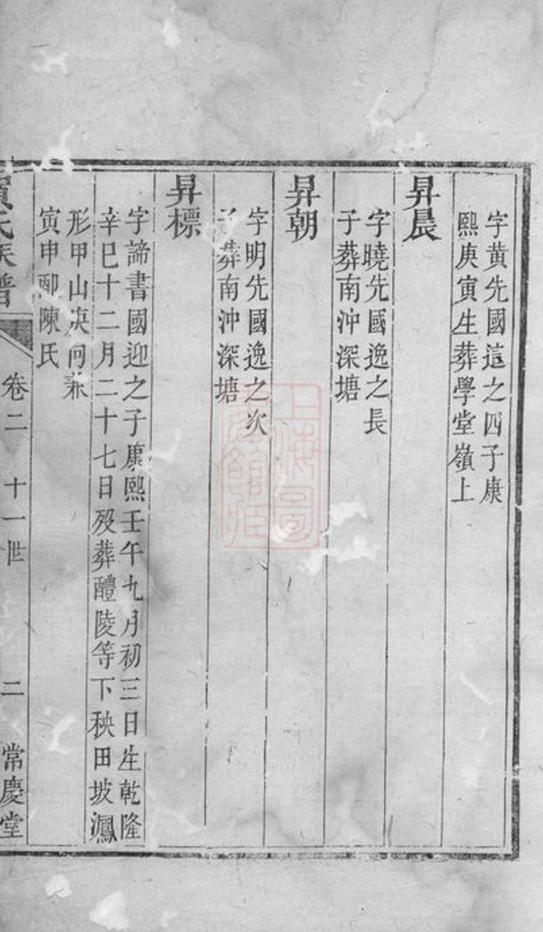 字黃先國這之四子康
熙庚寅生葬學堂嶺上
昇晨
字曉先國逸之長
子葬南沖深塘
昇朝
字明先國逸之次
子葬南沖深塘
昇標
字諦書國迎之子康熙壬午九月初三日生乾隆
辛巳十二月二十七日殁葬醴陵等下秧田坡鳳
形甲山庚向兼
寅申配陳氏
氏族譜
卷二 十一世 二 常慶堂
上海圖